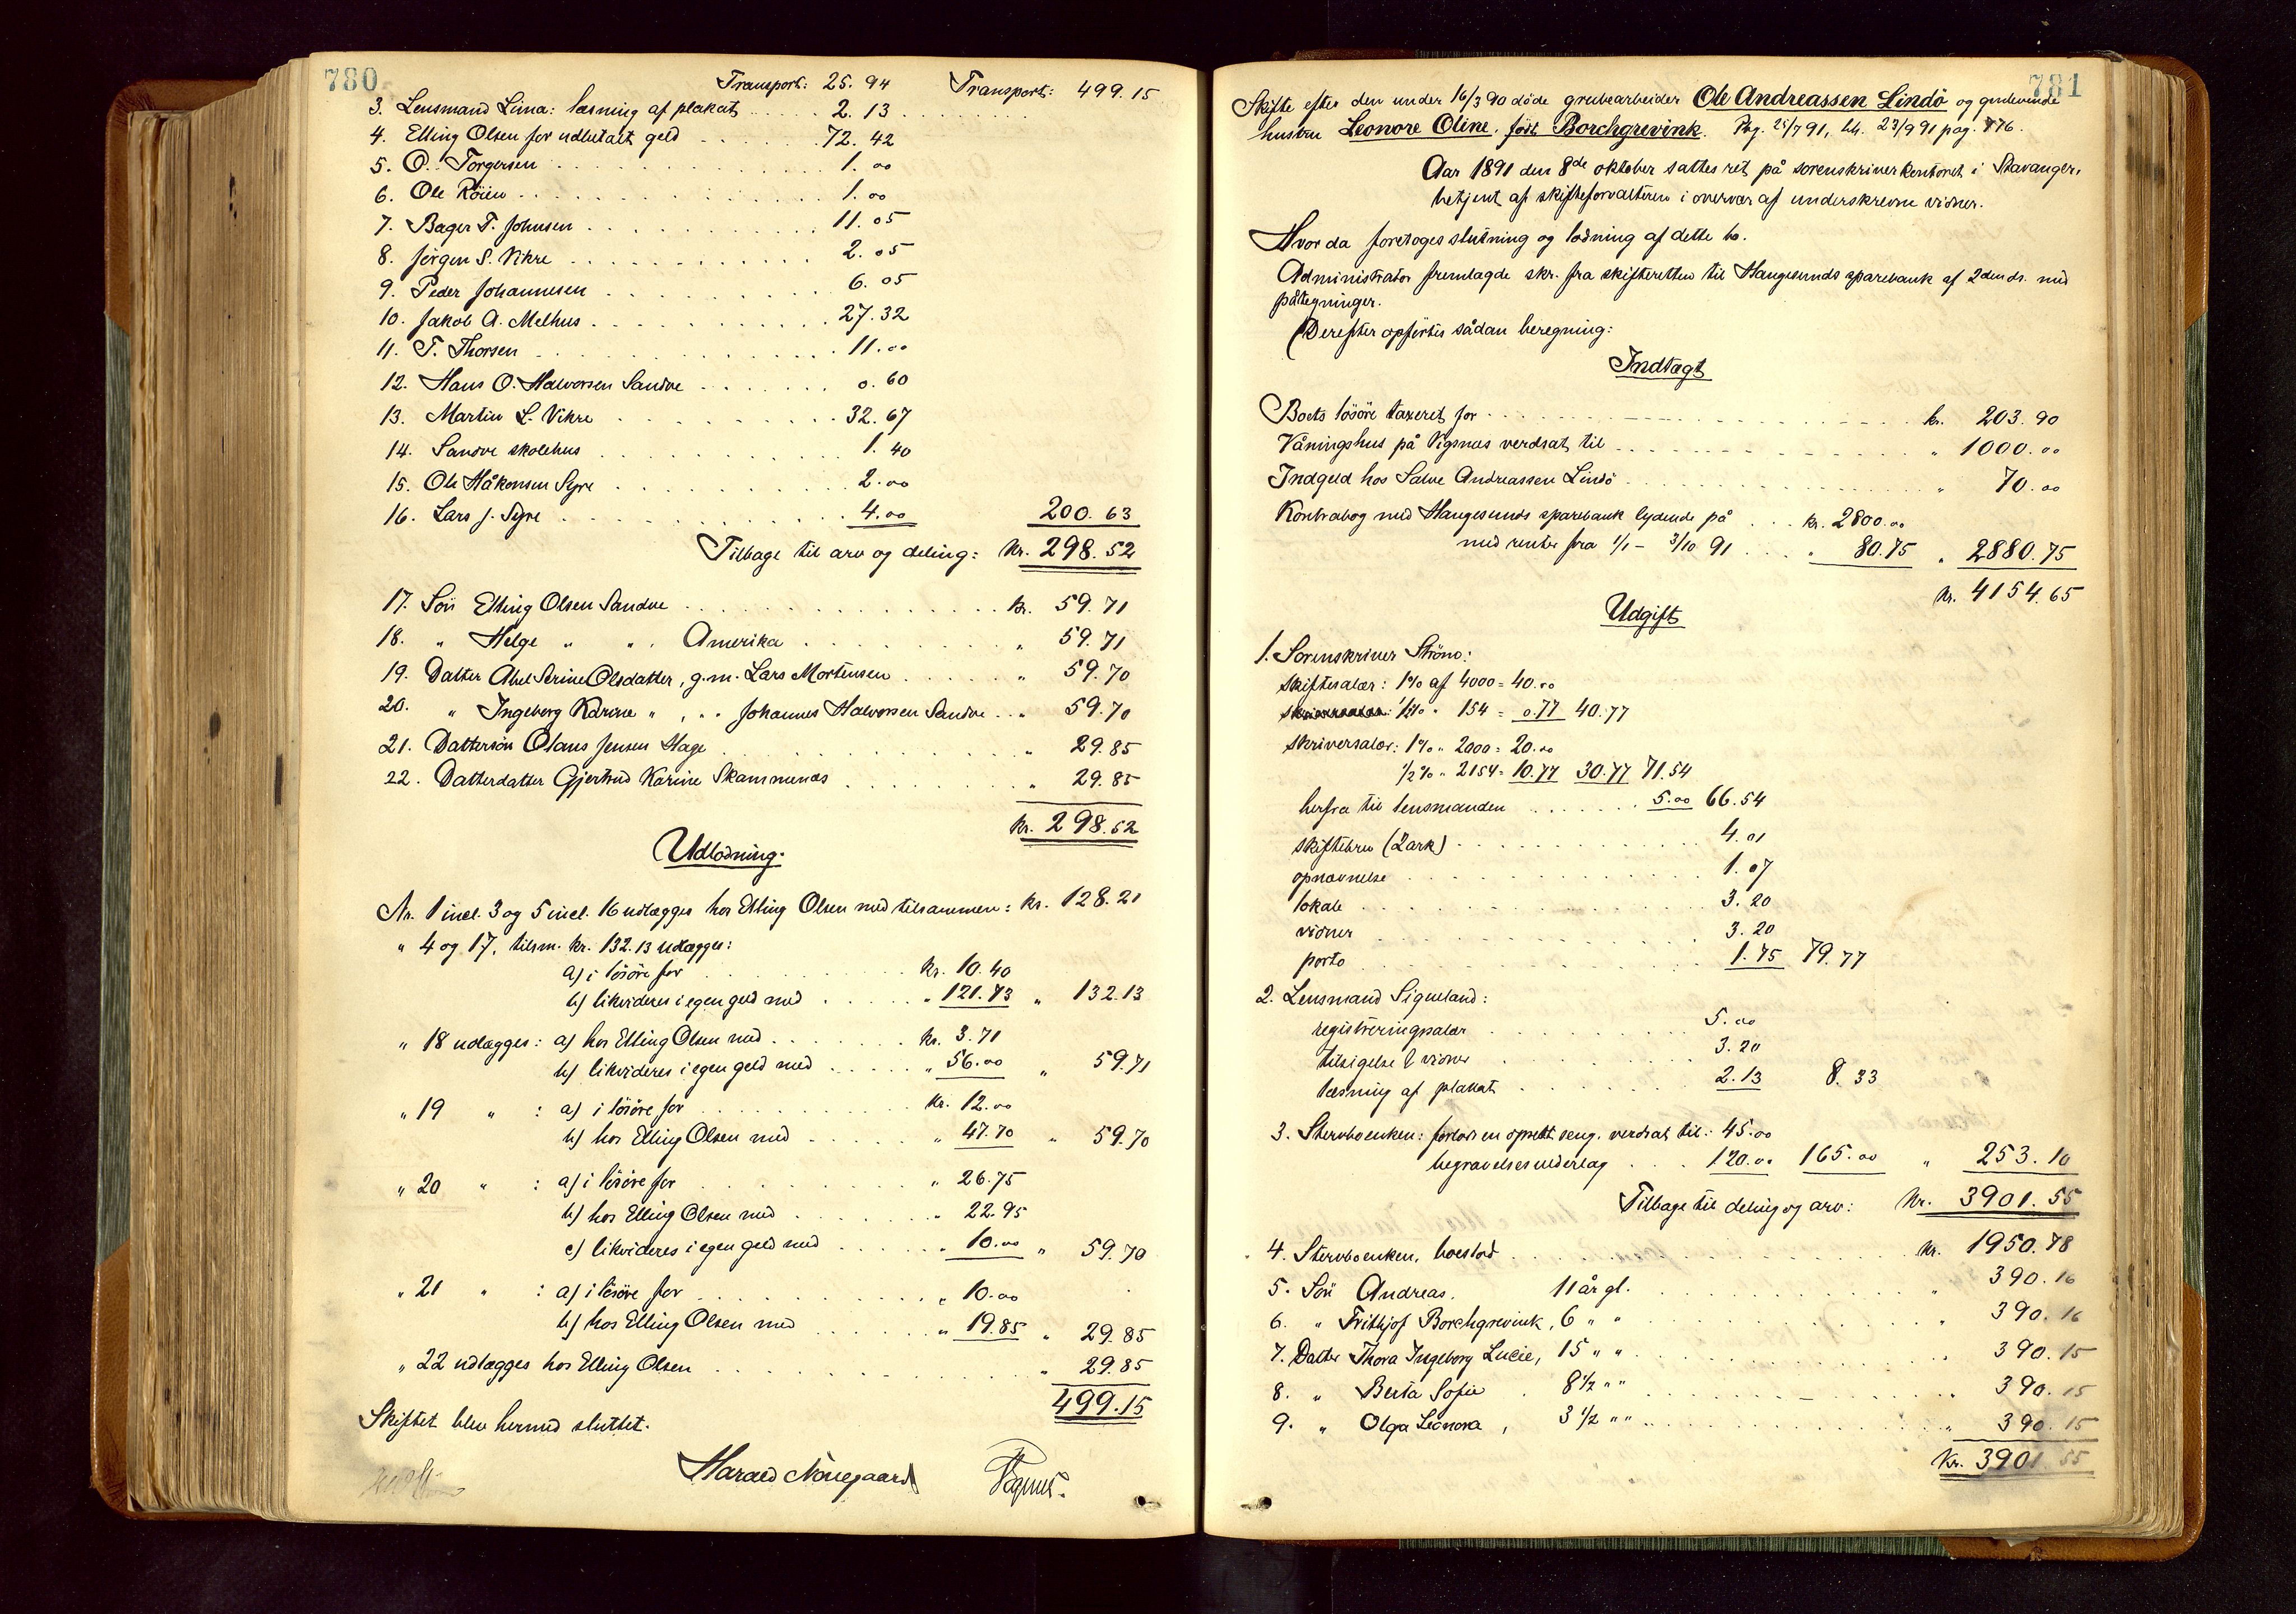 780
Transport: 25.94 Transport: 499.15
3. Lensmand Lima: læsning af plakat 2.13
4. Elling Olsen for udbetalt geld 72.42
5. O. Torgersen 1.00
6. Ole Röien 1.00
7. Bager T. Johnsen 11.05
8. Jörgen S. Vikre 2.05
9. Peder Johannesen 6.05
10. Jakob A. Melhus 27.32
11. T. Thorsen 11.00
12. Hans O. Halvorsen Sandve 0.60
13. Martin L. Vikre 32.67
14. Sandve skolehus 1.40
15. Ole Håkonsen Syre 2.00
16. Lars J. Syre 4.00 200.63
Tilbage til arv og deling: Kr. 298.52
17. Sön Elling Olsen Sandve kr. 59.71
18. " Helge " " . Amerika " 59.71
19. Datter Abel Serine Olsdatter, g.m. Lars Mortensen " 59.70
20. " Ingeborg Karine " , " " Johannes Halvorsen Sandve " 59.70
21. Dattersön Olaus Jensen Hage " 29.85
22. Datterdatter Gjertrud Karine Skammenæs " 29.85
kr. 298.52
Udlodning.
Nr. 1 incl. 3 og 5 incl. 16 udlægges hos Elling Olsen med tilsammen: kr. 128.21
" 4 og 17, tilsm. kr. 132.13 udlægges:
a) i lösöre for kr. 10.40
b) likvideres i egen geld med " 121.73 " 132.13
" 18 udlægges: a) hos Elling Olsen med kr. 3.71
b) likvideres i egen geld med " 56.00 " 59.71
" 19 " : a) i lösöre for kr. 12.00
b) hos Elling Olsen med " 47.70 " 59.70
" 20 " : a) i lösöre for " 26.75
b) hos Elling Olsen med " 22.95
c) likvideres i egen geld med " 10.00 " 59.70
" 21 " : a) i lösöre for " 10.00
b) hos Elling Olsen med " 19.85 " 29.85
" 22 udlægges hos Elling Olsen " 29.85
499.15
Skiftet blev hermed sluttet.
Harald Nörregaard
781
Skifte efter den under 16/3 90 döde grubearbeider Ole Andreassen Lindö og gjenlevende
hustru Leonore Oline, född Borchgrevink. Reg. 25/7 91, beh. 23/9 91 pag. 776.
Aar 1891 den 8de oktober sattes ret på sorenskriverkontoret i Stavanger,
betjent af skifteforvalteren i overvær af underskrevne vidner.
Hvor da foretoges slutning og lodning af dette bo.
Administrator fremlagde skr. fra skifteretten til Haugesunds sparebank af 2den ds. med
påtegninger.
Derefter opförtes sådan beregning:
Indtægt
Boets lösöre taxeret for kr. 203.90
Våningshus på Vigsnæs verdsat til " 1000.00
Indgeld hos Salve Andreassen Lindö " 70.00
Kontrabog med Haugesunds sparebank lydende på kr. 2800.00
med renter fra 1/1 - 3/10 91 " 80.75 " 2880.75
kr. 4154.65
Udgift
1. Sorenskriver Ström:
skiftesalær: 1% af 4000 = 40.00
1/2% " 154 = 0.77 40.77
skriversalær: 1% " 2000 = 20.00
1/2% " 2154 = 10.77 30.77 71.54
herfra til lensmanden 5.00 66.54
skiftebrev (2 ark) 4.01
opnævnelse 1.07
lokale 3.20
vidner 3.20
porto 1.75 79.77
2. Lensmand Sigueland:
registreringssalær 5.00
tilsigelse & vidner 3.20
læsning af plakat 2.13 8.33
3. Stervboenken: forlods en opredt seng, verdsat til: 45.00
begravelsesvederlag 120.00 165.00 " 253.10
Tilbage til deling og arv: Kr. 3901.55
4. Stervboenken, boeslod kr. 1950.78
5. Sön Andreas, 11 år gl. " 390.16
6. " Frithjof Borchgrevink, 6 " " " 390.16
7. Datter Thora Ingeborg Lucie, 15 " " " 390.15
8. " Berta Sofie 8 1/2 " " " 390.15
9. " Olga Leonora, 3 1/2 " " " 390.15
Kr. 3901.55